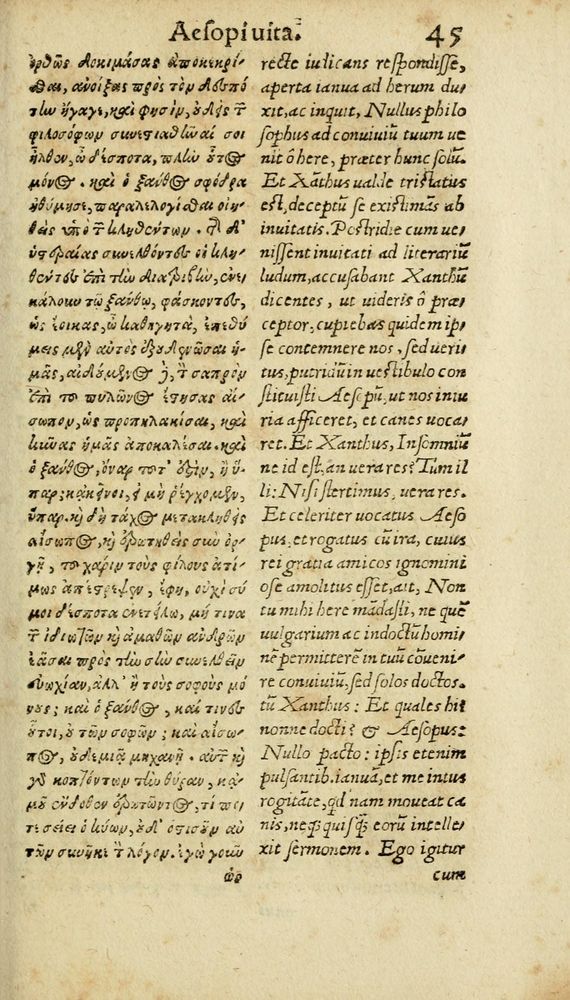 Aesopi uita. 45
ὀρθῶς δοκιμάσας ἀποκεκρί-
σθαι, ἀνοίξας πρὸς τὸν δεσπό
την ἤγαγε, καὶ φησὶν, οὐδεὶς τῶν
φιλοσόφων συνεστιαθῆναί σοι
ἦλθεν, ὦ δέσποτα, πλὴν οὗτος
μόνος. καὶ ὁ ξάνθος σφόδρα
ἠθύμησε, παραλελογίσθαι οἰη-
θεὶς ὑπὸ τῶν κληθέντων. τῆς δ'
ὑστεραίας συνελθόντες οἱ κλη-
θέντες ἐπὶ τὴν διατριβὴν, ἐνε-
κάλουν τῷ ξάνθῳ, φάσκοντες,
ὡς ἔοικας, ὦ καθηγητὰ, ἐπεθύ
μεις μὲν αὐτὸς ἐξουθενῶσαι ἡ-
μᾶς, αἰδούμενος δὲ, τὸν σαπρὸν
ἐπὶ τοῦ πυλῶνος ἔστησας αἴ-
σωπον, ὡς προπηλακίσαι, καὶ
κύνας ἡμᾶς ἀποκαλέσαι. καὶ
ὁ ξάνθος, ὄναρ τοῦτ' ἐστὶν, ἢ ὕ-
παρ; κἀκεῖνοι, εἰ μὴ ῥέγχομεν,
ὕπαρ. καὶ δὴ τάχος μετακληθεὶς
αἴσωπος, καὶ ἐρωτηθεὶς σὺν ὀρ-
γῇ, τοῦ χάριν τοὺς φίλους ἀτί-
μως ἀπέστρεψεν, ἔφη, οὐχὶ σύ
μοι δέσποτα ἐνετείλω, μή τινα
τῶν ἰδιωτῶν καὶ ἀμαθῶν ἀνδρῶν
ἐᾶσαι πρὸς τὴν σὴν συνελθεῖν
εὐωχίαν, ἀλλ' ἢ τοὺς σοφοὺς μό
νους; καὶ ὁ ξάνθος, καὶ τίνες
οὗτοι, οὐ τῶν σοφῶν; καὶ αἴσω-
πος, οὐδεμιᾷ μηχανῇ. αὐτῶν
γὰρ κοπτόντων τὴν θύραν, κἀ-
μοῦ ἔνδοθεν ἐρωτῶντος, τί πο-
τε σείει ὁ κύων, οὐδ' ὁτιοῦν αὐ
τῶν συνῆκε τὸν λόγον. ἐγὼ γοῦν
recte iudicans respondisse,
aperta ianua ad herum du-
xit, ac inquit, Nullus philo
sophus ad conuiuiũ tuum ue
nit ô here, præter hunc solũ.
Et Xãthus ualde tristatus
est, deceptũ se existimãs ab
inuitatis. Postridie cum ue-
nissent inuitati ad literariũ
ludum, accusabant Xanthũ
dicentes, ut uideris ô præ-
ceptor, cupiebas quidem ip-
se contemnere nos, sed ueri-
tus, putridũ in uestibulo con
stituisti Aesopũ, ut nos iniu
ria afficeret, et canes uoca-
ret. Et Xanthus, Insomniũ
ne id est, an uera res? Tum il
li: Nisi stertimus, uera res.
Et celeriter uocatus Aeso
pus, et rogatus cũ ira, cuius
rei gratia amicos ignomini
ose amolitus esset, ait, Non
tu mihi here mãdasti, ne quẽ
uulgarium ac indoctũ homi-
nẽ permitterẽ in tuũ cõueni-
re conuiuiũ, sed solos doctos.
tũ Xanthus: Et quales hi?
nonne docti? & Aesopus:
Nullo pacto: ipsis etenim
pulsantib. ianuã, et me intus
rogitãte, qd nam moueat ca
nis, neq; quisq̃ eorũ intelle-
xit sermonem. Ego igitur
cum